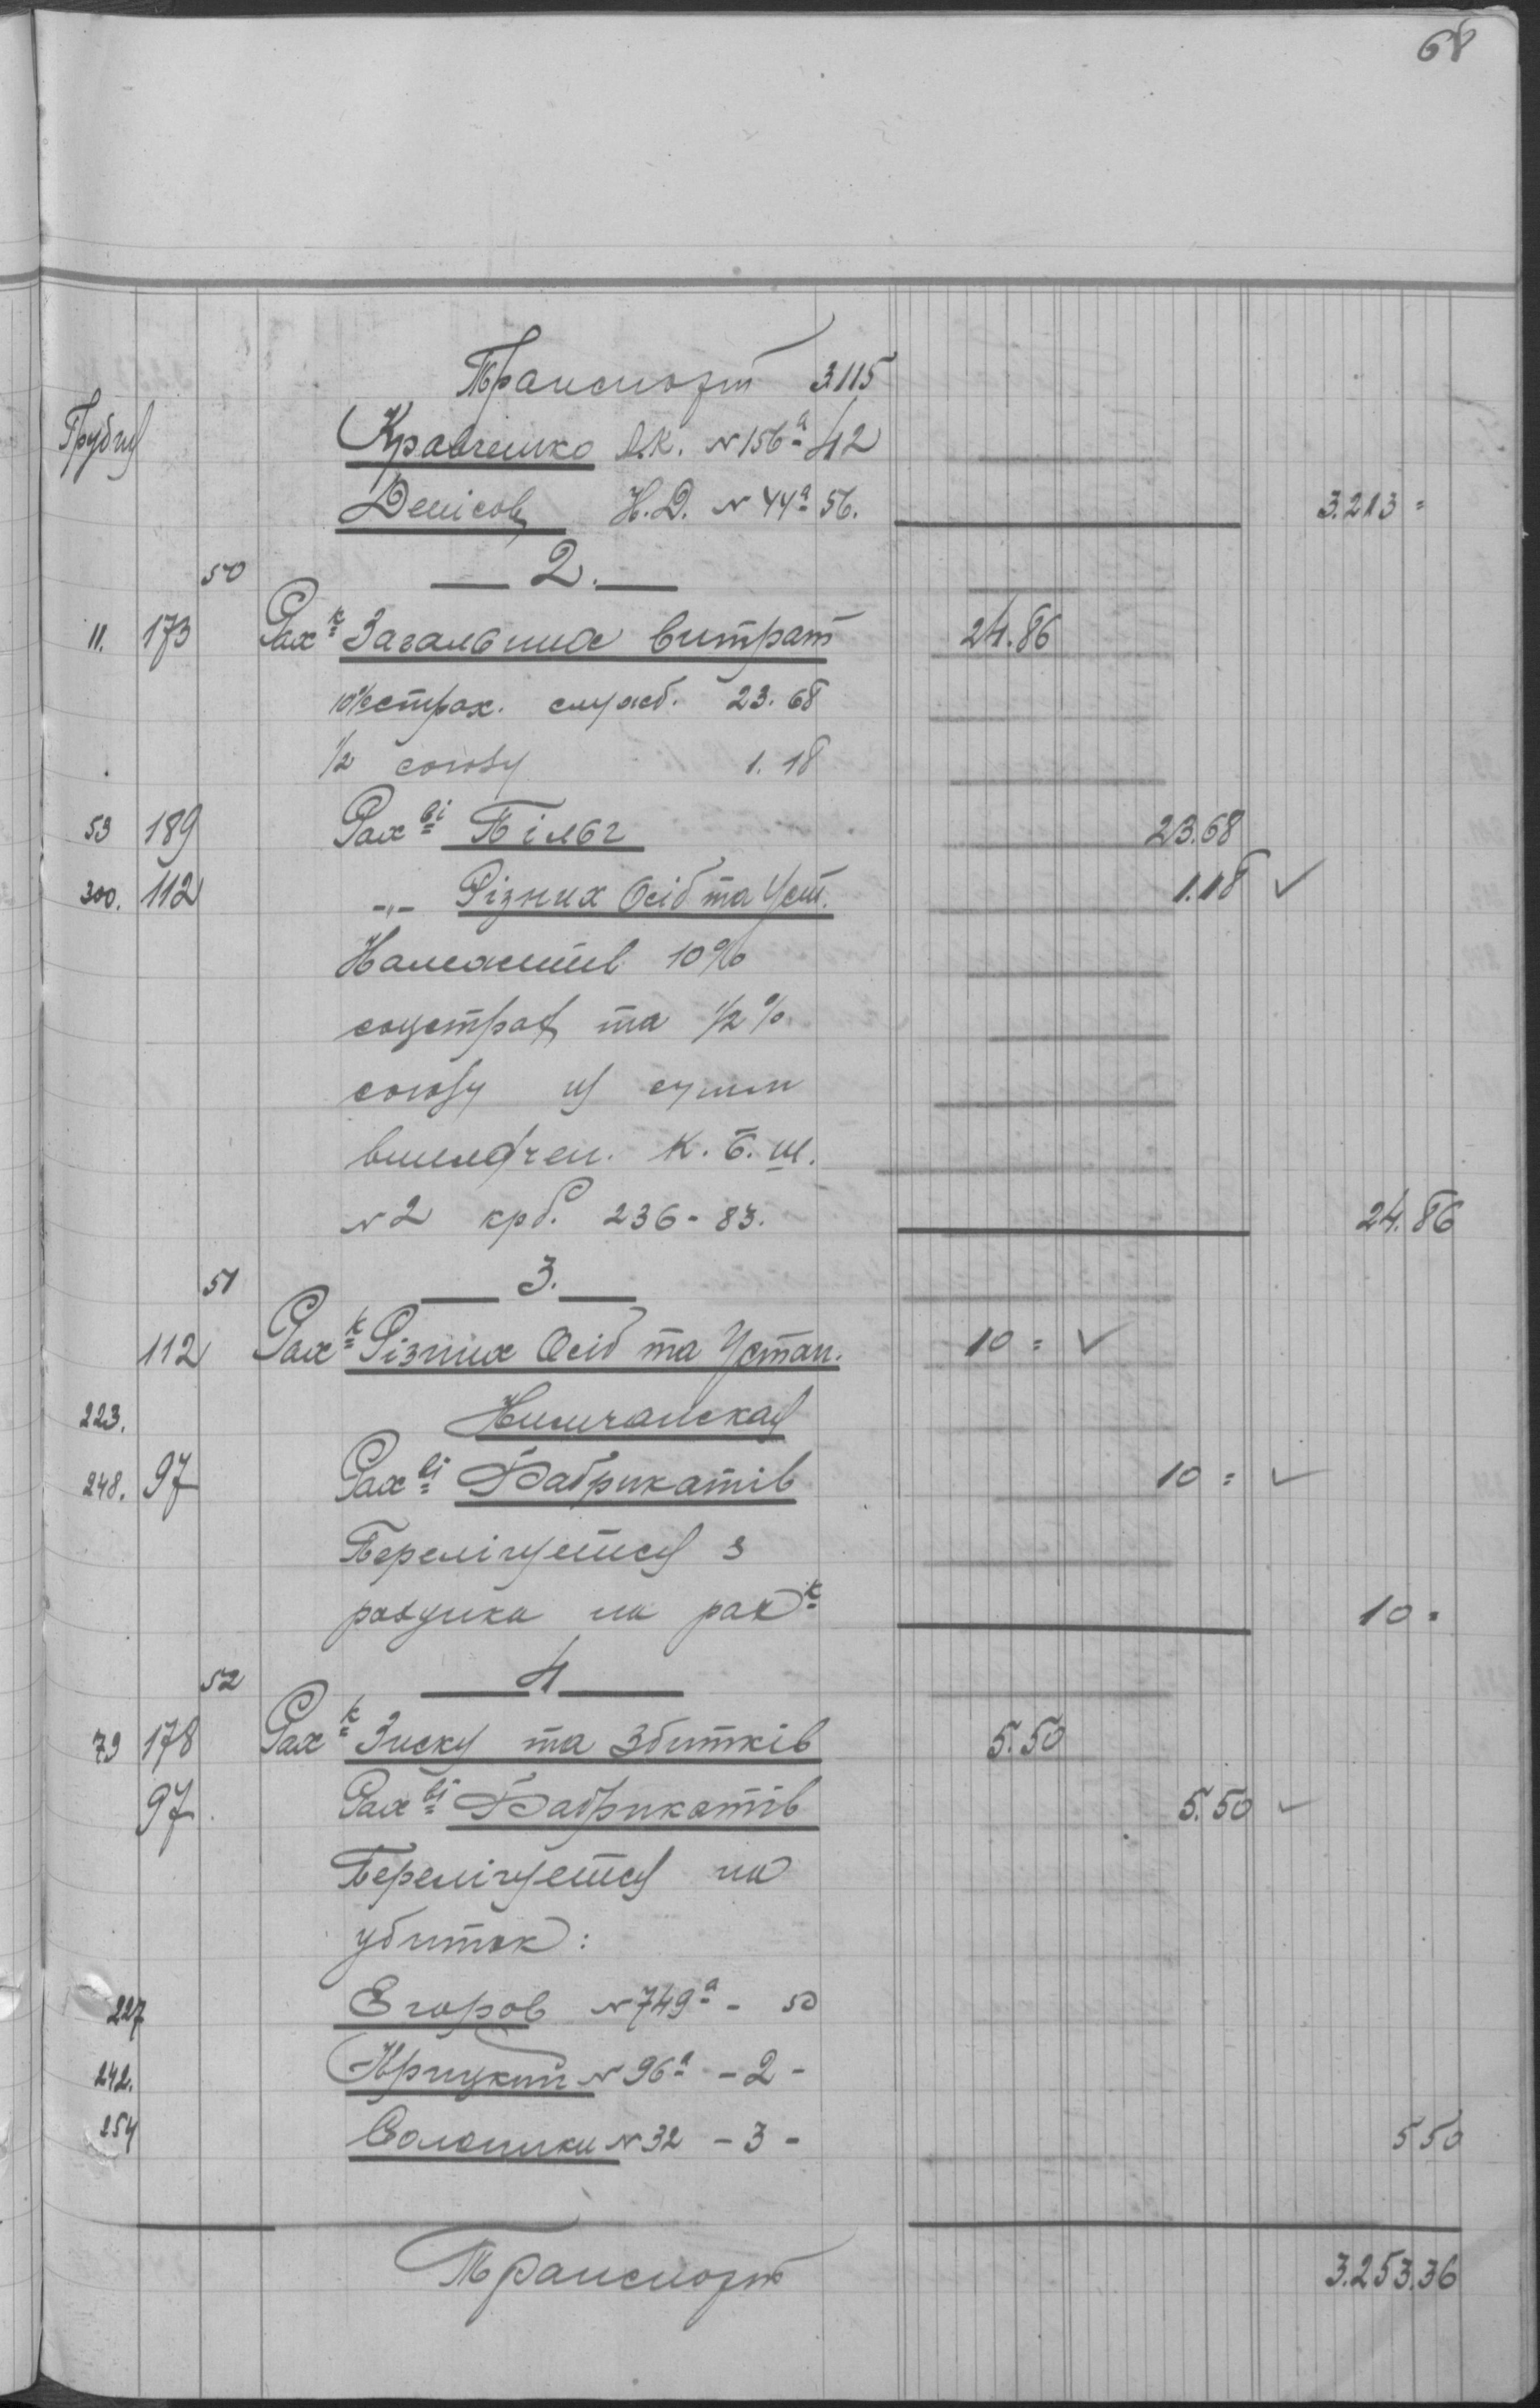 68
Транспорт 3115
Грудня Кравченко А.К. №156а 42
Денісов Н.Д. №44а 56. 3.213 =
50 — 2. —
11. 173 Рах-к Загальних витрат 24.86
10% страх. служб. 23.68
1/2 союзу 1.18
53 189 Рах-ві Пільг 23.68
300. 112 -"- Різних Осіб та Уст. 1.18 ✓
10%
соцстрах та 1/2%
союзу із суми
К.Б.Ш.
№2 крб. 236-83. 24.86
51 — 3. —
112 Рах-к Різних Осіб та Устан. 10 = ✓
223.
248. 97 Рах-ві Фабрикатів 10 = ✓
Перелічуеться з
рахунка на рах-к 10 =
52 — 4 —
79 178 Рах-к Зиску та Збитків 5.50
97 Рах-ві Фабрикатів 5.50 ✓
Перелічуеться на
убиток:
227 Егоров №749а - 50
242. Крицкий №96а - 2 -
254 №32 - 3 - 5 50
Транспорт 3.253.36